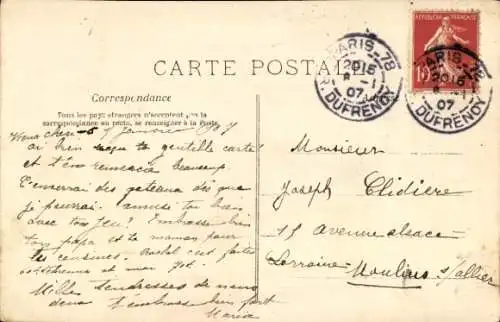 CARTE POSTALE
Correspondance
Tous les pays étrangers n'acceptent pas la
correspondance au recto, se renseigner à la Poste.
janvier 1907
ai bien reçu ta gentille carte
et t'en remercie beaucoup
J'enverrai des gateaux dès que
je pourrai. amuse toi bien
avec ton jeu! Embrasse bien
ton papa et ta maman pour
tes cousines.
Mille tendresses de nous
deux t'embrasse bien fort
Maria
RÉPUBLIQUE FRANÇAISE
10
PARIS - 78
2015
8 - 1
07
R. DUFRENOY
PARIS - 78
2015
8 - 1
07
R. DUFRENOY
Monsieur
Joseph Clidière
15 Avenue alsace
Lorraine Moulins s/allier